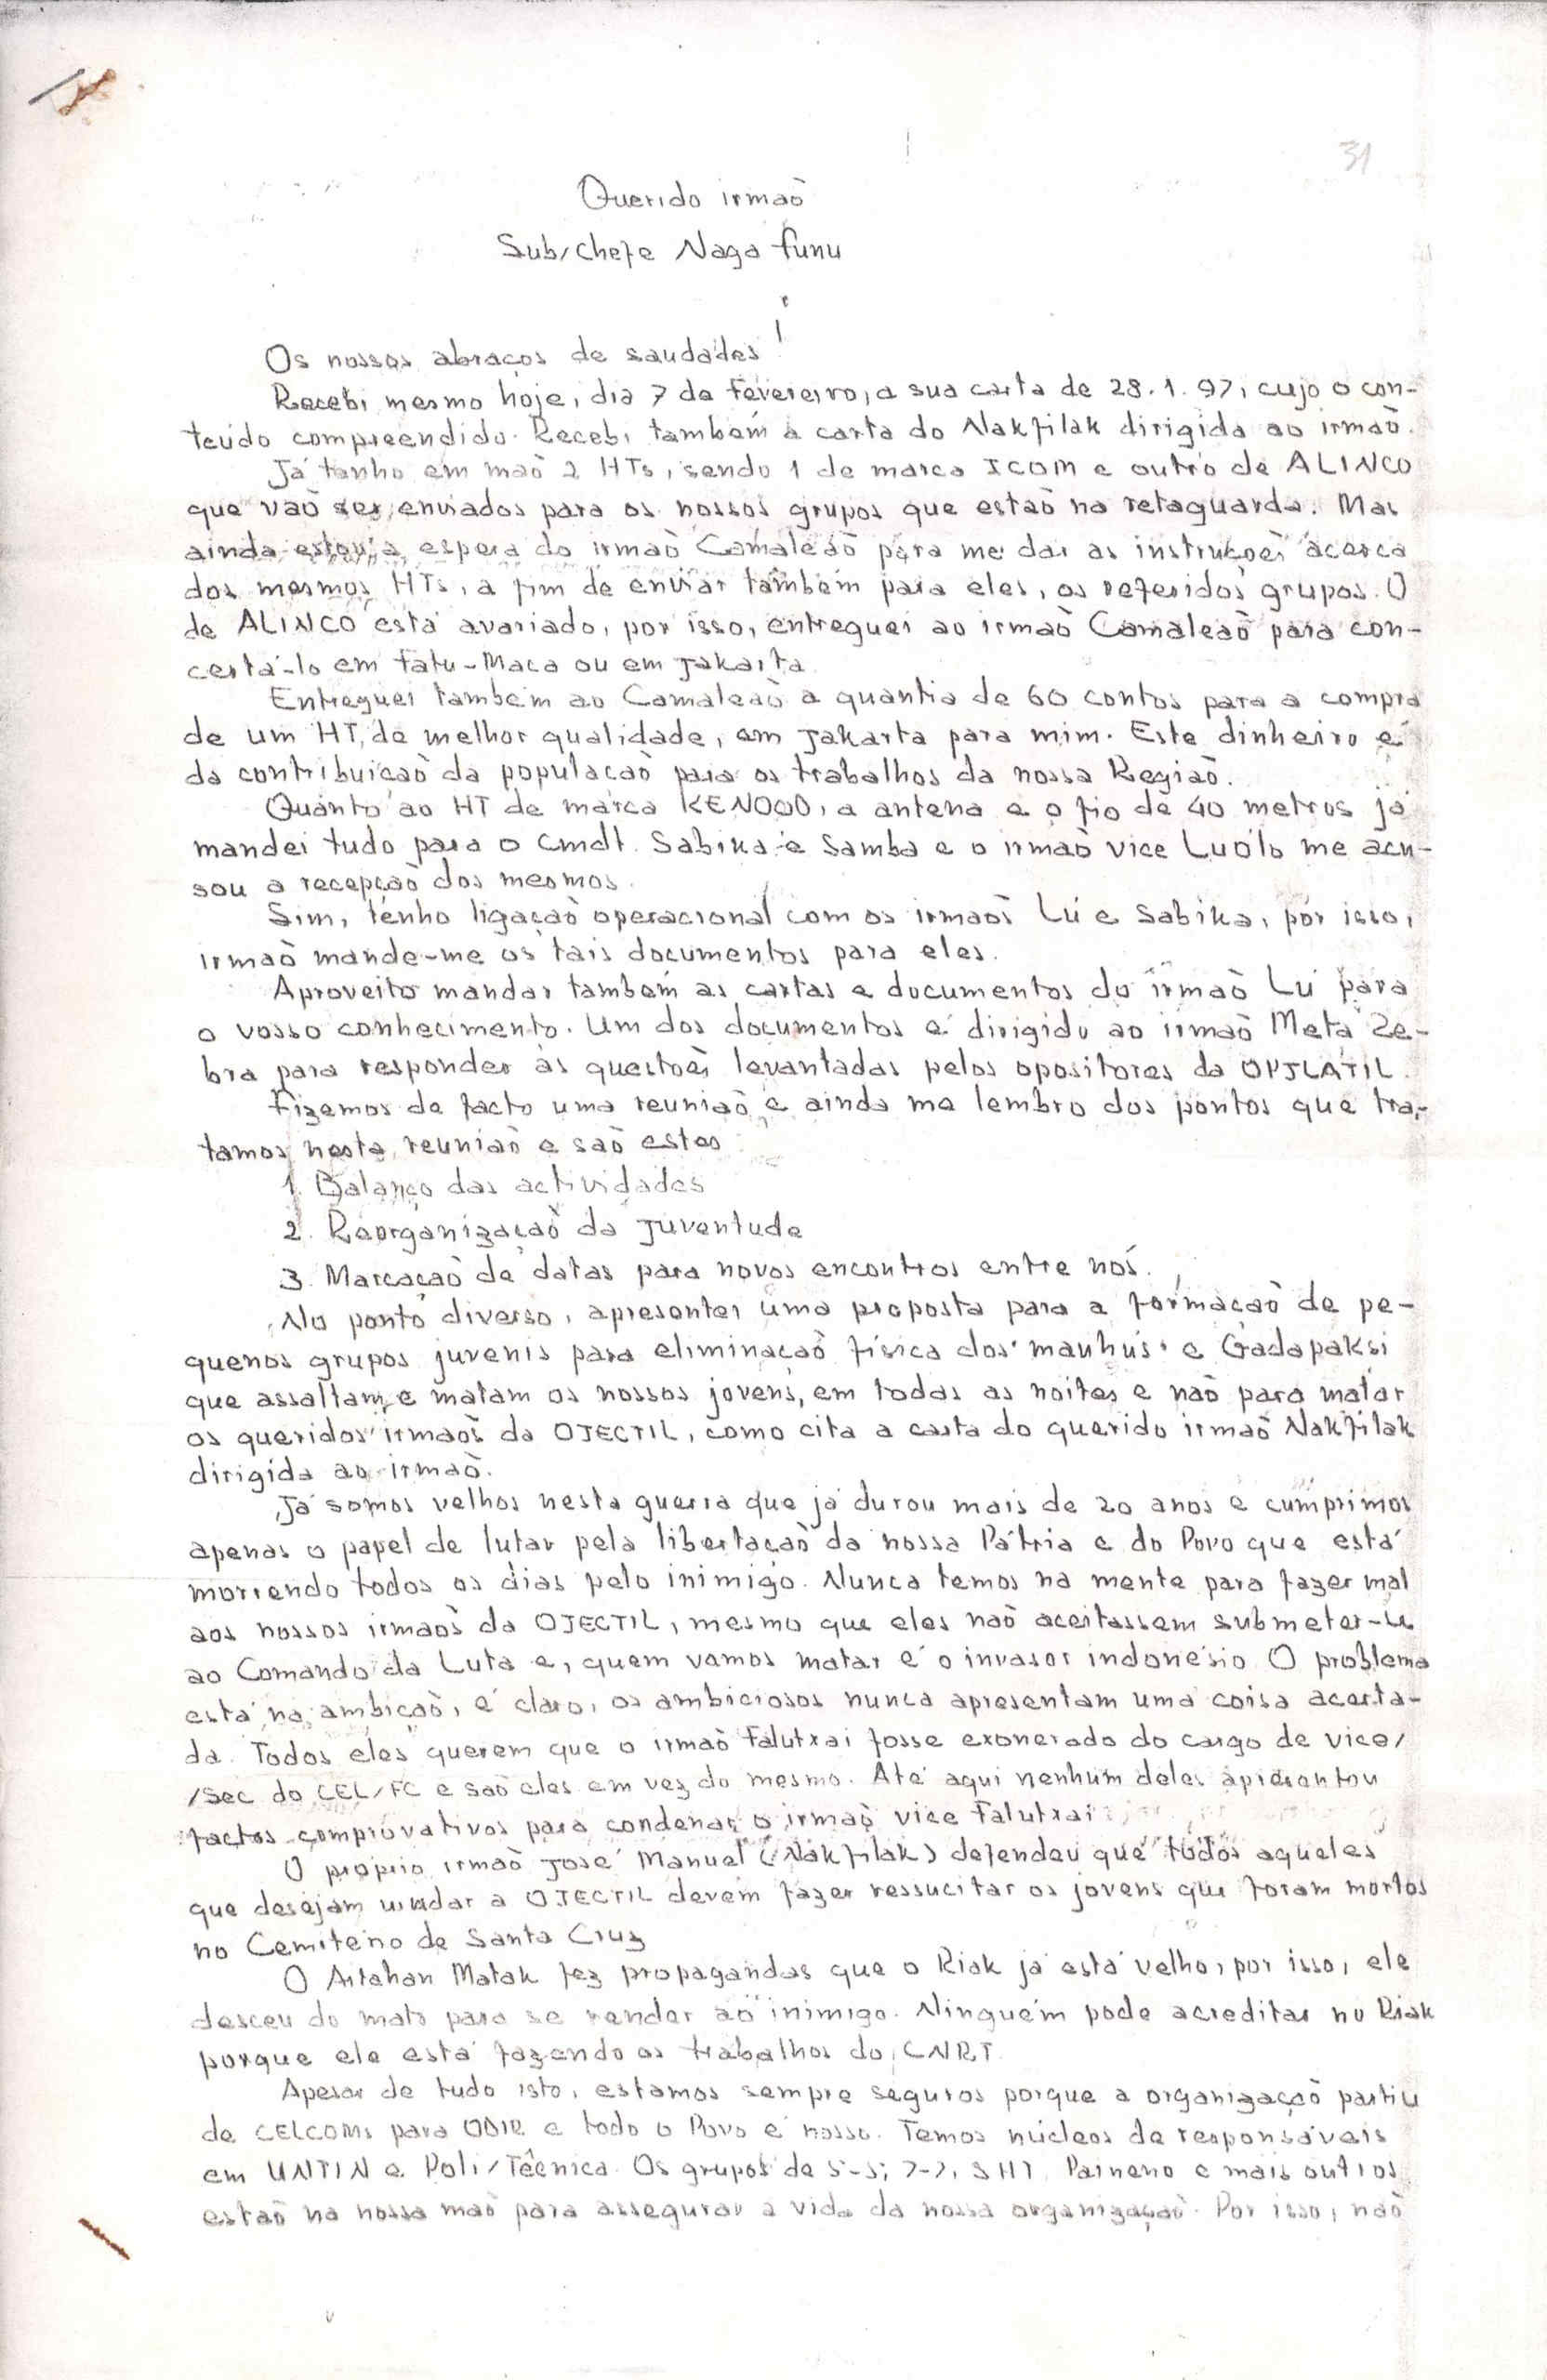 31
Querido irmaõ
Sub/Chefe Naga funu
Os nossos abraços de saudades!
Recebi mesmo hoje, dia 7 de fevereiro, a sua carta de 28.1.97, cujo o con-
teúdo compreendido. Recebi também a carta do Nakfilak dirigida ao irmaõ.
Já tenho em maõ 2 HTs, sendo 1 de marca ICOM e outro de ALINCO
que vaõ ser enviados para os nossos grupos que estaõ na retaguarda. Mas
ainda estou à espera do irmaõ Camaleaõ para me dar as instruçoẽs acerca
dos mesmos HTs, a fim de enviar também para eles, os referidos grupos. O
de ALINCO está avariado, por isso, entreguei ao irmaõ Camaleaõ para con-
certá-lo em fatu-Maca ou em Jakarta.
Entreguei também ao Camaleaõ a quantia de 60 contos para a compra
de um HT, de melhor qualidade, em Jakarta para mim. Este dinheiro é
da contribuiçaõ da populaçaõ para os trabalhos da nossa Regiaõ.
Quanto ao HT de marca KENOOD, a antena e o fio de 40 metros já
mandei tudo para o Cmdt. Sabika e Samba e o irmaõ vice Luólo me acu-
sou a recepçaõ dos mesmos.
Sim, tenho ligaçaõ operacional com os irmaõs Lú e Sabika, por isso,
irmaõ mande-me os tais documentos para eles.
Aproveito mandar também as cartas e documentos do irmaõ Lú para
o vosso conhecimento. Um dos documentos é dirigido ao irmaõ Meta Ze-
bra para responder às questoẽs levantadas pelos opositores da OPJLATIL.
Fizemos de facto uma reuniaõ e ainda me lembro dos pontos que tra-
tamos nesta reuniaõ e saõ estes
1. Balanço das actividades
2. Reorganizaçaõ da Juventude
3. Marcaçaõ de datas para novos encontros entre nós.
No ponto diverso, apresentei uma proposta para a formaçaõ de pe-
quenos grupos juvenis para eliminaçaõ física dos "mauhús" e Gadapaksi
que assaltam e matam os nossos jovens, em todas as noites e naõ para matar
os queridos irmaõs da OJECTIL, como cita a carta do querido irmaõ Nakfilak
dirigida ao irmaõ.
Já somos velhos nesta guerra que já durou mais de 20 anos e cumprimos
apenas o papel de lutar pela libertaçaõ da nossa Pátria e do Povo que está
morrendo todos os dias pelo inimigo. Nunca temos na mente para fazer mal
aos nossos irmaõs da OJECTIL, mesmo que eles naõ aceitassem submeter-se
ao Comando da Luta e, quem vamos matar é o invasor indonésio. O problema
está na ambiçaõ, é claro, os ambiciosos nunca apresentam uma coisa acerta-
da. Todos eles querem que o irmaõ Falutxai fosse exonerado do cargo de vice/
/Sec do CEL/FC e saõ eles em vez do mesmo. Até aqui nenhum deles apresentou
factos comprovativos para condenar o irmaõ vice Falutxai.
O próprio irmaõ José Manuel (Nakfilak) defendeu que todos aqueles
que desejam mudar a OJECTIL devem fazer ressucitar os jovens que foram mortos
no Cemitério de Santa Cruz
O Aitahan Matak fez propagandas que o Riak já está velho, por isso, ele
desceu do mato para se render ao inimigo. Ninguém pode acreditar no Riak
porque ele está fazendo os trabalhos do CNRT.
Apesar de tudo isto, estamos sempre seguros porque a organizaçaõ partiu
de CELCOMs para ODIR e todo o Povo é nosso. Temos núcleos de responsáveis
em UNTIN e Poli/Técnica. Os grupos de 5-5; 7-7, SHT, Paineno e mais outros
estaõ na nossa maõ para assegurar a vida da nossa organizaçaõ. Por isso, naõ